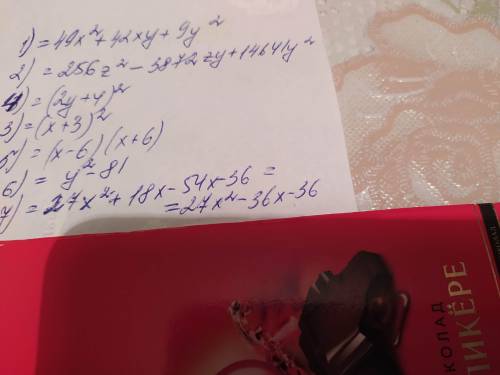 1) = 49x² + 42xy + 9y²
2) = 256z² - 3872zy + 14641y²
4) = (2y+4)²
3) = (x+3)²
5) = (x-6)(x+6)
6) = y² - 81
7) = 27x² + 18x - 54x - 36 =
= 27x² - 36x - 36
КОЛАД
ЛИКЁРЕ